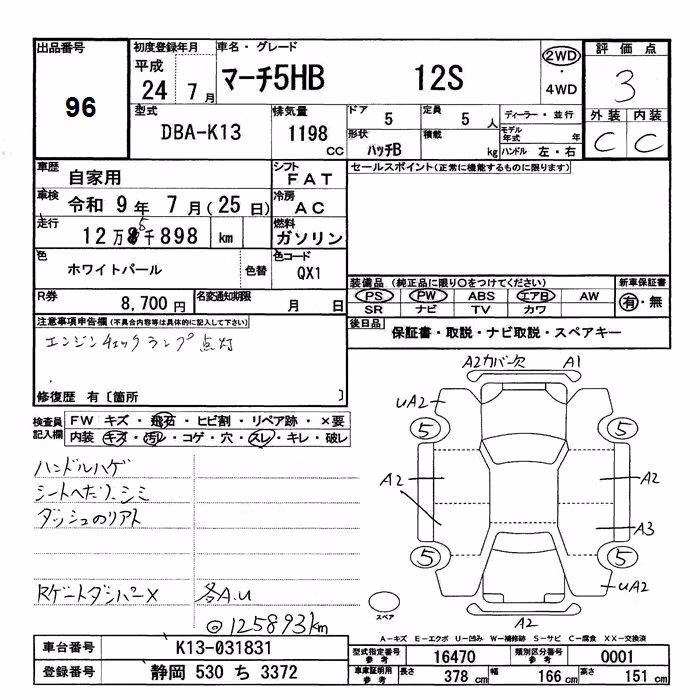 出品番号
96
初度登録年月
平成
24 7月
車名・グレード
マーチ5HB 12S
2WD
・
4WD
評価点
3
外装 内装
C C
型式
DBA-K13
排気量
1198 CC
ドア 5
定員 5 人
形状 ハッチB
積載 kg
ディーラー・並行
モデル年式 年
ハンドル 左・右
車歴
自家用
シフト
FAT
車検
令和 9年 7月(25日)
冷房
AC
走行
12万 5千 898 km
燃料
ガソリン
色
ホワイトパール
色替
色コード
QX1
R券
8,700円
名変通知期限 月 日
セールスポイント(正常に機能するものに限ります)
装備品 (純正品に限り○をつけてください)
PS PW ABS エアB AW
SR ナビ TV カワ
新車保証書
有・無
後日品
保証書・取説・ナビ取説・スペアキー
注意事項申告欄(不具合内容等は具体的に記入して下さい)
エンジンチェックランプ点灯
修復歴 有〔箇所 〕
検査員記入欄
FW キズ・飛石・ヒビ割・リペア跡・×要
内装 キズ・汚レ・コゲ・穴・スレ・キレ・破レ
ハンドルハゲ
シートへたり、シミ
ダッシュのリアト
Rゲートダンパー× 各A.U
◎125893km
A2カバー欠 A1
UA2
5 5
A2 A2
A3
5 5
UA2
A2
スペア
A-キズ E-エクボ U-凹み W-補修跡 S-サビ C-腐食 XX-交換済
車台番号
K13-031831
登録番号
静岡 530 ち 3372
型式指定番号 参考
16470
類別区分番号 参考
0001
車庫証明用 参考
長さ 378 cm
幅 166 cm
高さ 151 cm